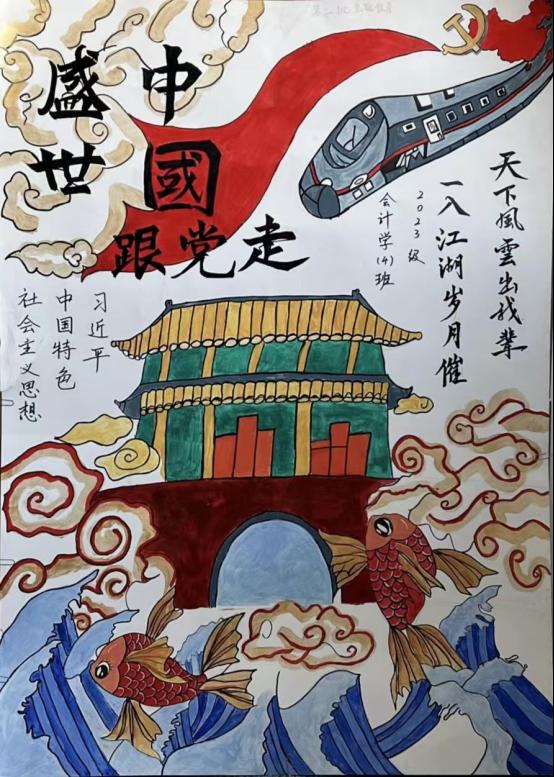 盛世
中國
跟党走
天下風雲出我輩
一入江湖岁月催
2023级
会计学(4)班
习近平
中国特色
社会主义思想